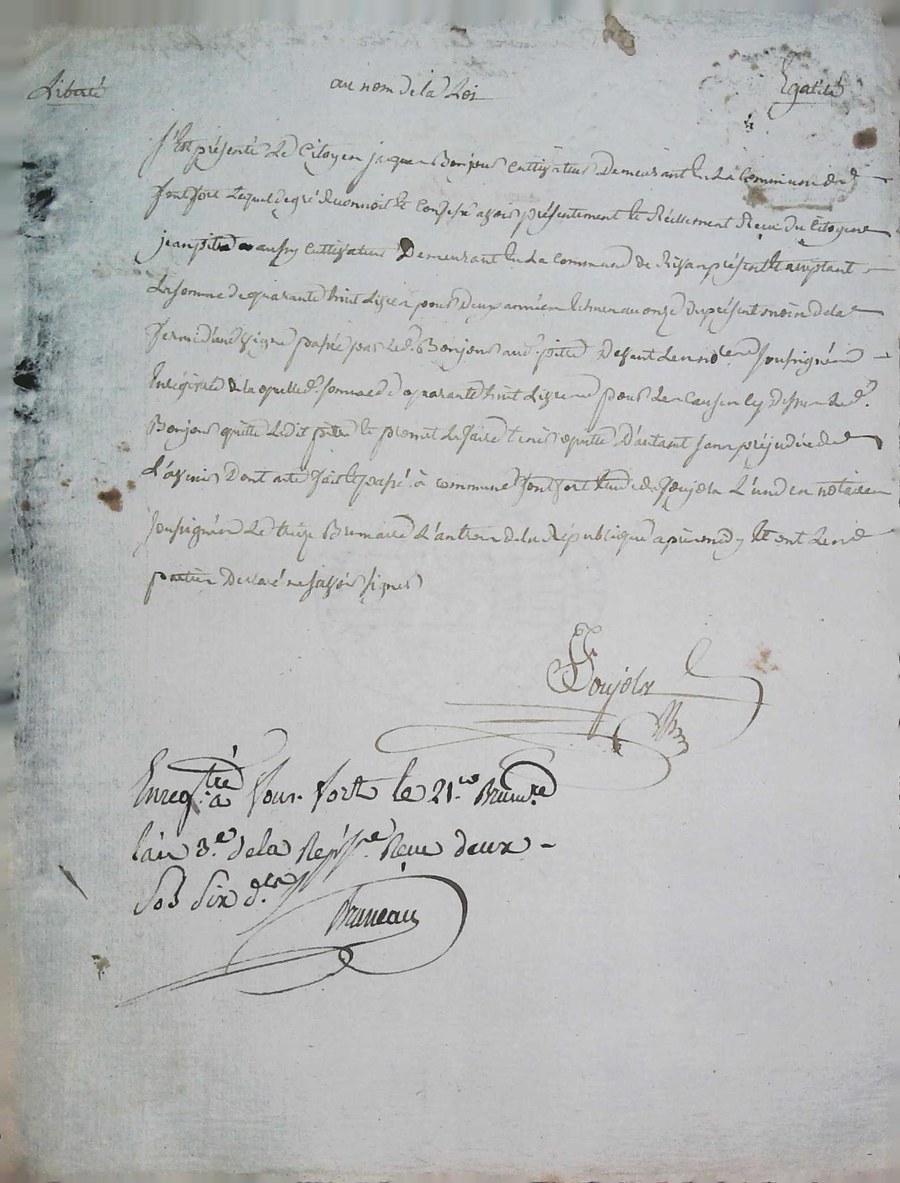 Liberté au nom de la Loi Egalité
S'est présenté Le Citoyen jacques Bonjour Cultivateur Demeurant En La Commune de
fonsfort Lequel de gré Reconnoit & Confesse avoir présentement & Réellement Receu Du Citoyen
jean pitre aussy Cultivateur Demeurant En La Commune de présent & aceptant
La somme de quarante huit Livres pour deux années Echues au onze du présent mois de la
ferme d'une vigne passée par Led. Bonjour aud. pitre Devant Les no.res soussignés
Enregistré De la quelle d. somme de quarante huit Livres pour Les Causes Cy Dessus Led.
Bonjour quitte Ledit pitre & promet Le faire tenir quitte D'autant sans préjudice de
L'avenir Dont acte fait & passé à commune fonsfort Etude de Soujols L'un des notaires
soussignés Le treize Brumaire L'an trois de la République après midy Et ont Les
parties Declaré ne savoir signer
Soujols
Enreg.tré à fons-fort le 21.e Brum.re
l'an 3.e de la Rép. Reçu deux
Sols Six d.ers
Bruneau